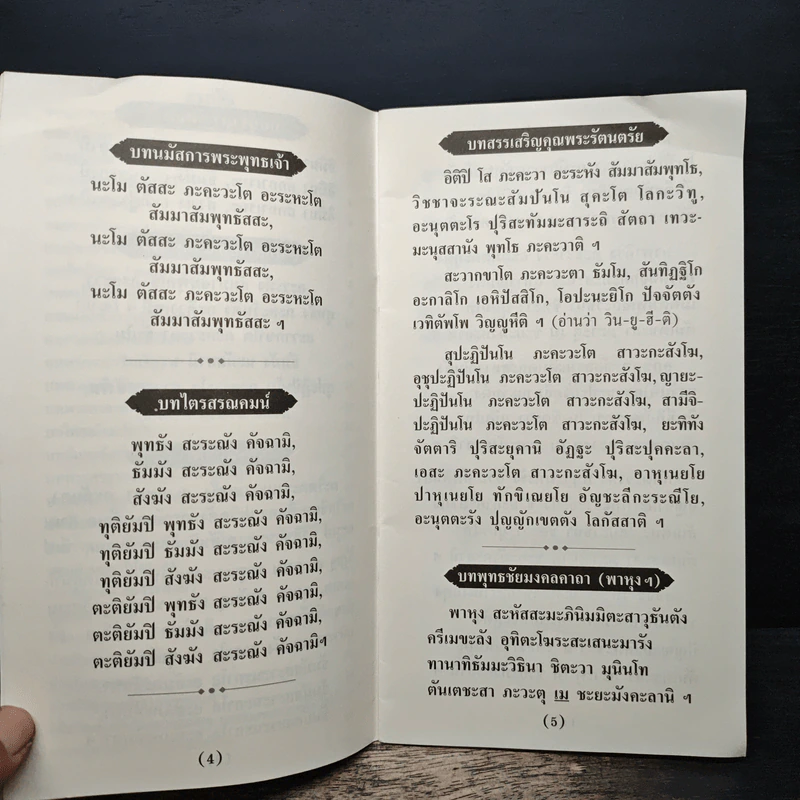 บทนมัสการพระพุทธเจ้า
นะโม ตัสสะ ภะคะวะโต อะระหะโต
สัมมาสัมพุทธัสสะ,
นะโม ตัสสะ ภะคะวะโต อะระหะโต
สัมมาสัมพุทธัสสะ,
นะโม ตัสสะ ภะคะวะโต อะระหะโต
สัมมาสัมพุทธัสสะ ฯ
บทไตรสรณคมน์
พุทธัง สะระณัง คัจฉามิ,
ธัมมัง สะระณัง คัจฉามิ,
สังฆัง สะระณัง คัจฉามิ,
ทุติยัมปิ พุทธัง สะระณัง คัจฉามิ,
ทุติยัมปิ ธัมมัง สะระณัง คัจฉามิ,
ทุติยัมปิ สังฆัง สะระณัง คัจฉามิ,
ตะติยัมปิ พุทธัง สะระณัง คัจฉามิ,
ตะติยัมปิ ธัมมัง สะระณัง คัจฉามิ,
ตะติยัมปิ สังฆัง สะระณัง คัจฉามิฯ
(4)
บทสรรเสริญคุณพระรัตนตรัย
อิติปิ โส ภะคะวา อะระหัง สัมมาสัมพุทโธ,
วิชชาจะระณะสัมปันโน สุคะโต โลกะวิทู,
อะนุตตะโร ปุริสะทัมมะสาระถิ สัตถา เทวะ-
มะนุสสานัง พุทโธ ภะคะวาติ ฯ
สะวากขาโต ภะคะวะตา ธัมโม, สันทิฏฐิโก
อะกาลิโก เอหิปัสสิโก, โอปะนะยิโก ปัจจัตตัง
เวทิตัพโพ วิญญูหีติ ฯ (อ่านว่า วิน-ยู-ฮี-ติ)
สุปะฏิปันโน ภะคะวะโต สาวะกะสังโฆ,
อุชุปะฏิปันโน ภะคะวะโต สาวะกะสังโฆ, ญายะ-
ปะฏิปันโน ภะคะวะโต สาวะกะสังโฆ, สามีจิ-
ปะฏิปันโน ภะคะวะโต สาวะกะสังโฆ, ยะทิทัง
จัตตาริ ปุริสะยุคานิ อัฏฐะ ปุริสะปุคคะลา,
เอสะ ภะคะวะโต สาวะกะสังโฆ, อาหุเนยโย
ปาหุเนยโย ทักขิเณยโย อัญชะลีกะระณีโย,
อะนุตตะรัง ปุญญักเขตตัง โลกัสสาติ ฯ
บทพุทธชัยมงคลคาถา (พาหุงฯ)
พาหุง สะหัสสะมะภินิมมิตะสาวุธันตัง
ครีเมขะลัง อุทิตะโฆระสะเสนะมารัง
ทานาทิธัมมะวิธินา ชิตะวา มุนินโท
ตันเตชะสา ภะวะตุ เม ชะยะมังคะลานิ ฯ
(5)